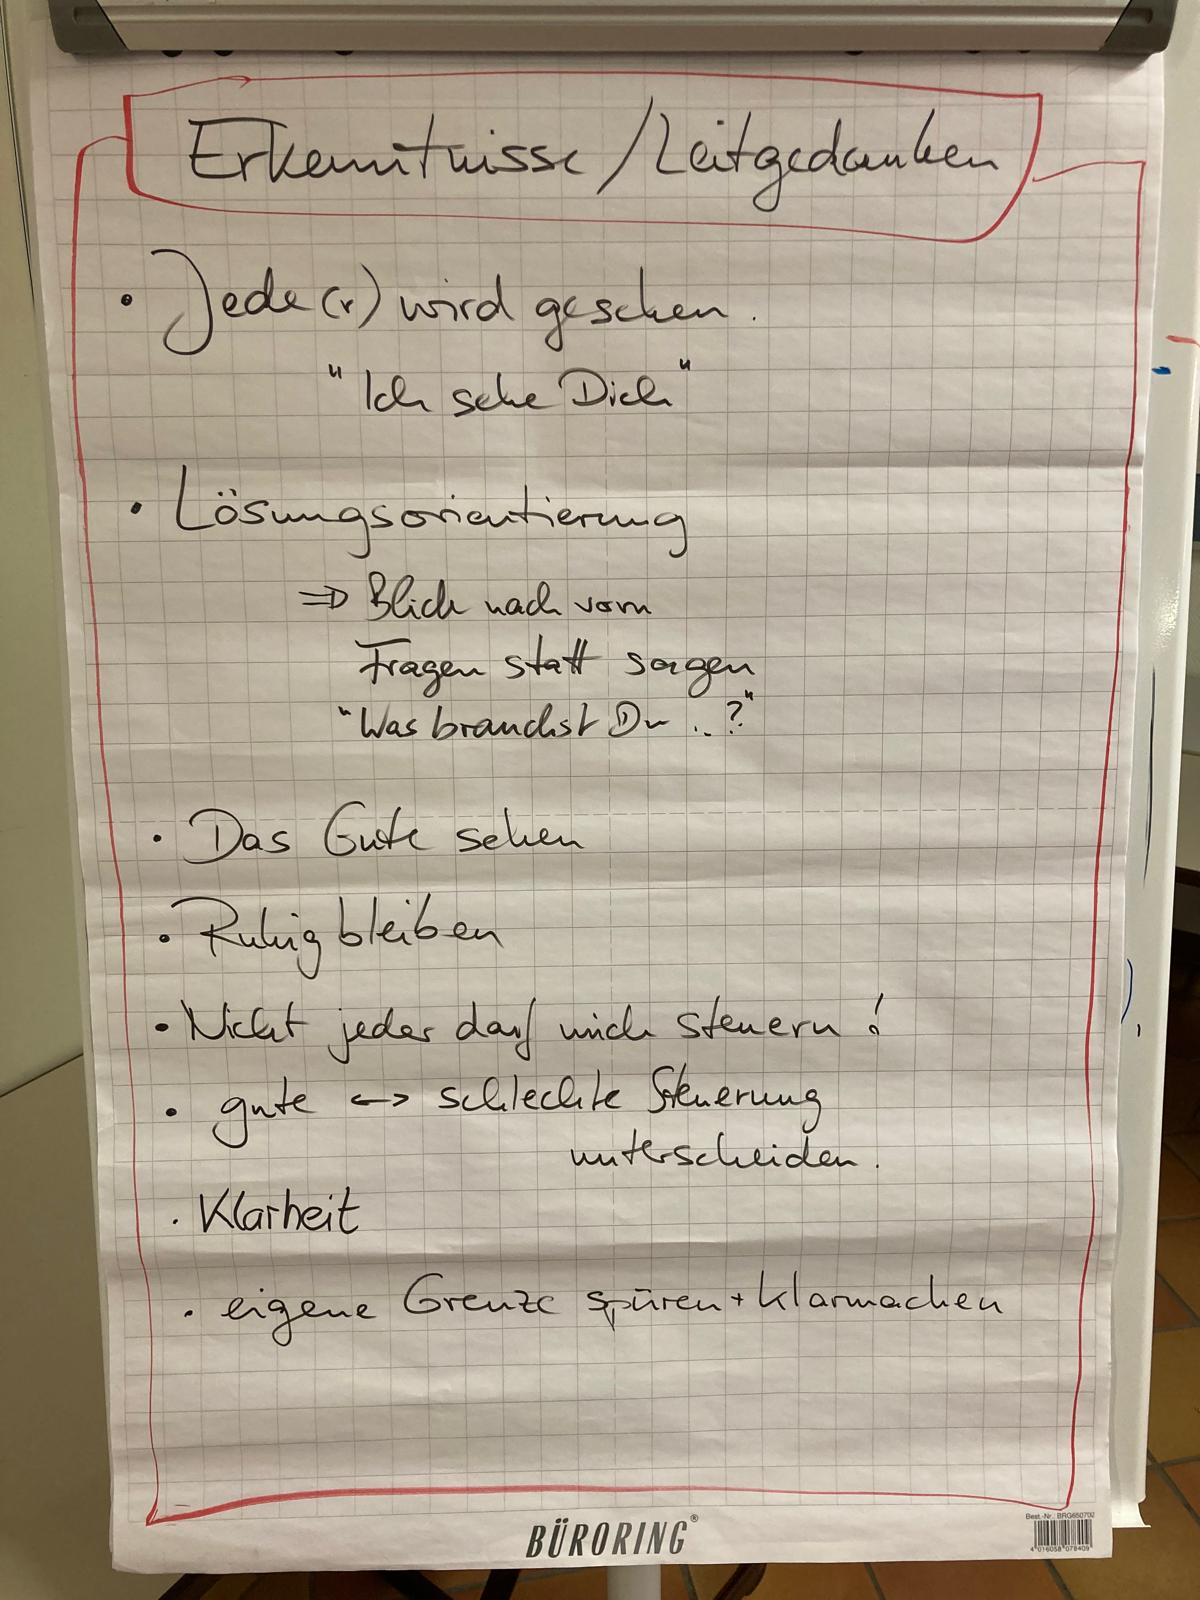 Erkenntnisse / Leitgedanken
• Jede(r) wird gesehen.
"Ich sehe Dich"
• Lösungsorientierung
⇒ Blick nach vorn
Fragen statt sagen
"Was brauchst Du ..?"
• Das Gute sehen
• Ruhig bleiben
• Nicht jeder darf mich steuern!
• gute ↔ schlechte Steuerung
unterscheiden.
• Klarheit
• eigene Grenze spüren + klarmachen
BÜRORING®
Best.-Nr.: BRG650702
4 016058 078409